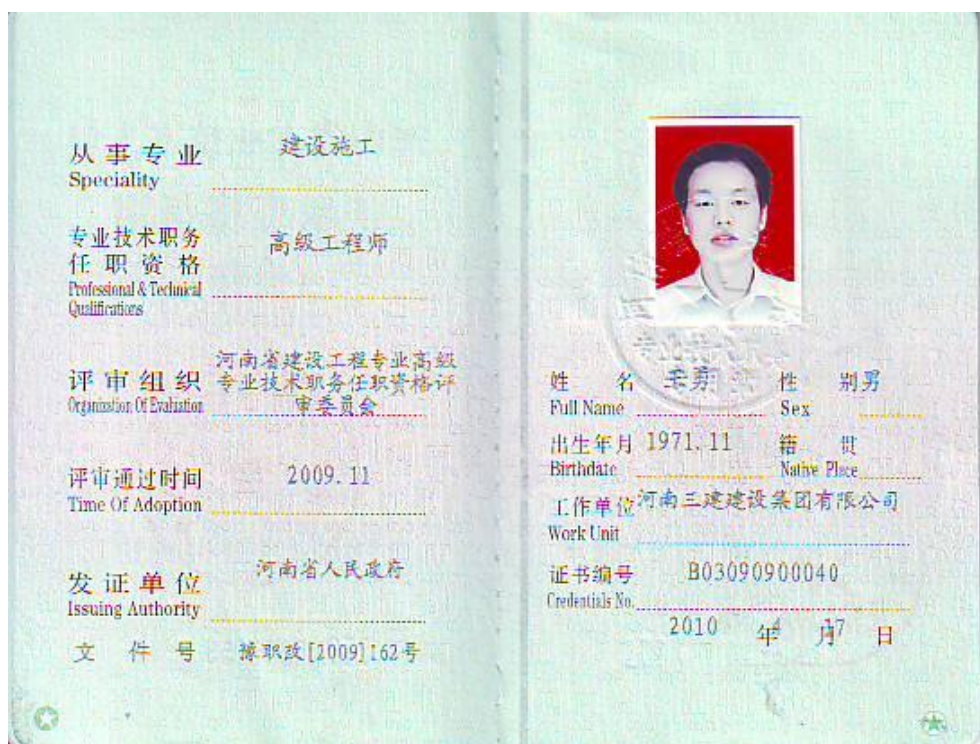 从事专业 建设施工
Speciality
专业技术职务 高级工程师
任职资格
Professional & Technical
Qualifications
河南省建设工程专业高级
评审组织 专业技术职务任职资格评
Organization Of Evaluation 审委员会
评审通过时间 2009.11
Time Of Adoption
发证单位 河南省人民政府
Issuing Authority
文件号 豫职政[2009]162号
姓名 性别 男
Full Name Sex
出生年月 1971.11 籍贯
Birthdate Native Place
工作单位 河南三建建设集团有限公司
Work Unit
证书编号 B03090900040
Credentials No.
2010 年 4 月 17 日